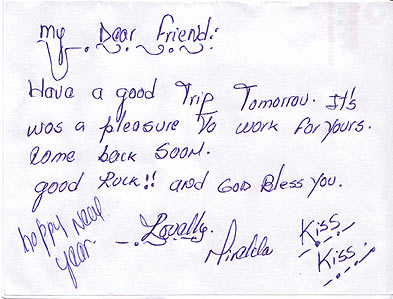 My Dear Friend:
Have a good Trip Tomorrow. It's
was a pleasure to work for yours.
Come back soon.
good Luck!! and GOD Bless you.
Lovally.
happy New
year.
Miralda
Kiss.
Kiss.